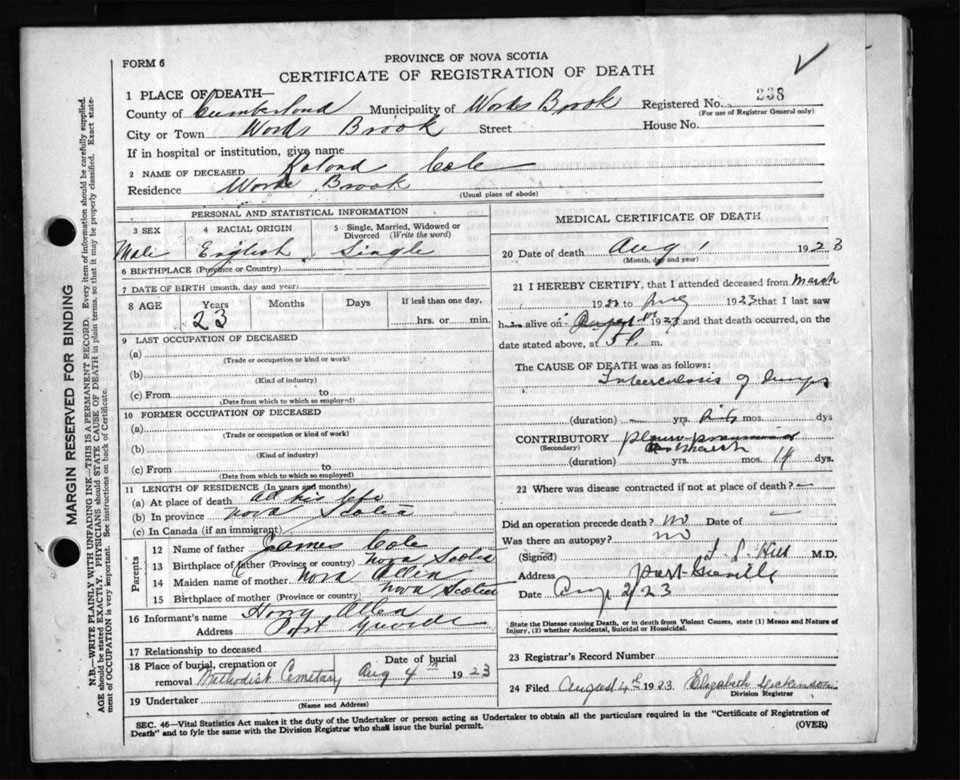 FORM 6
PROVINCE OF NOVA SCOTIA
CERTIFICATE OF REGISTRATION OF DEATH
1 PLACE OF DEATH—
County of Cumberland Municipality of Words Brook Registered No. 238
(For use of Registrar General only)
City or Town Words Brook Street House No.
If in hospital or institution, give name
2 NAME OF DECEASED Roland Cole
Residence Words Brook
(Usual place of abode)
PERSONAL AND STATISTICAL INFORMATION
3 SEX 4 RACIAL ORIGIN 5 Single, Married, Widowed or Divorced (Write the word)
Male English Single
6 BIRTHPLACE (Province or Country)
7 DATE OF BIRTH (month, day and year)
8 AGE Years Months Days If less than one day,
23 hrs. or min.
9 LAST OCCUPATION OF DECEASED
(a)
(Trade or occupation or kind or work)
(b)
(Kind of industry)
(c) From to
(Date from which to which so employed)
10 FORMER OCCUPATION OF DECEASED
(a)
(Trade or occupation or kind of work)
(b)
(Kind of industry)
(c) From to
(Date from which to which so employed)
11 LENGTH OF RESIDENCE (In years and months)
(a) At place of death all his life
(b) In province Nova Scotia
(c) In Canada (if an immigrant)
Parents
12 Name of father James Cole
13 Birthplace of father (Province or country) Nova Scotia
14 Maiden name of mother Nova Allen
15 Birthplace of mother (Province or country) Nova Scotia
16 Informant's name Harry Allen
Address Port Greville
17 Relationship to deceased
18 Place of burial, cremation or removal Methodist Cemetary Date of burial Aug 4th 1923
19 Undertaker
(Name and Address)
MEDICAL CERTIFICATE OF DEATH
20 Date of death Aug 1 1923
(Month, day and year)
21 I HEREBY CERTIFY, that I attended deceased from March
19 to Aug 1923 that I last saw
h alive on 1923 and that death occurred, on
date stated above, at m.
The CAUSE OF DEATH was as follows:
Tuberculosis of Lungs
(duration) yrs. mos. dys
CONTRIBUTORY
(Secondary)
(duration) yrs. mos. 14 dys.
22 Where was disease contracted if not at place of death? —
Did an operation precede death? no Date of
Was there an autopsy? no
(Signed) Hill M.D.
Address Port Greville
Date Aug 2/23
State the Disease causing Death, or in death from Violent Causes, state (1) Means and Nature of Injury, (2) whether Accidental, Suicidal or Homicidal.
23 Registrar's Record Number
24 Filed August 4th 1923 Elizabeth
Division Registrar
SEC. 46—Vital Statistics Act makes it the duty of the Undertaker or person acting as Undertaker to obtain all the particulars required in the "Certificate of Registration of
Death" and to fyle the same with the Division Registrar who shall issue the burial permit. (OVER)
MARGIN RESERVED FOR BINDING
N.B.—WRITE PLAINLY WITH UNFADING INK—THIS IS A PERMANENT RECORD. Every item of information should be carefully supplied.
AGE should be stated EXACTLY. PHYSICIANS should STATE CAUSE OF DEATH in plain terms, so that it may be properly classified. Exact state-
ment of OCCUPATION is very important. See instructions on back of Certificate.